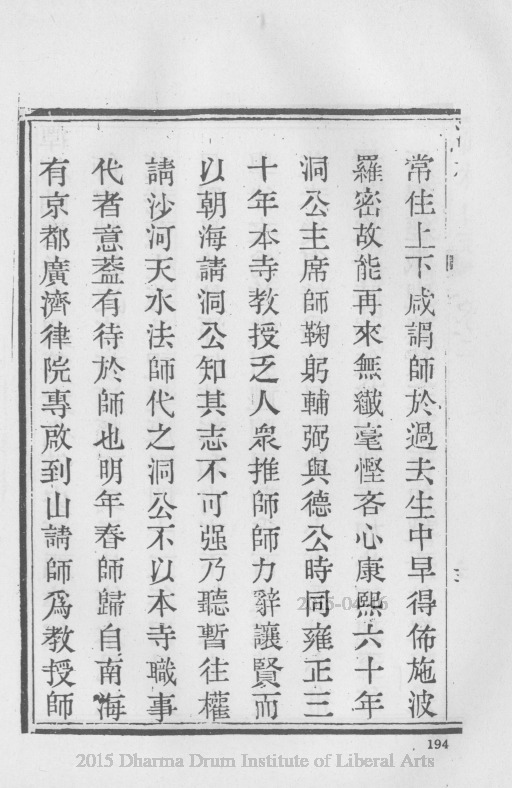 常住上下咸謂師於過去生中早得佈施波
羅密故能再來無纖毫慳吝心康熙六十年
洞公主席師鞠躬輔弼與德公時同雍正三
十年本寺教授乏人衆推師師力辭讓賢而
以朝海請洞公知其志不可强乃聽暫往權
請沙河天水法師代之洞公不以本寺職事
代者意葢有待於師也明年春師歸自南海
有京都廣濟律院專啟到山請師爲教授師
194
2015 Dharma Drum Institute of Liberal Arts